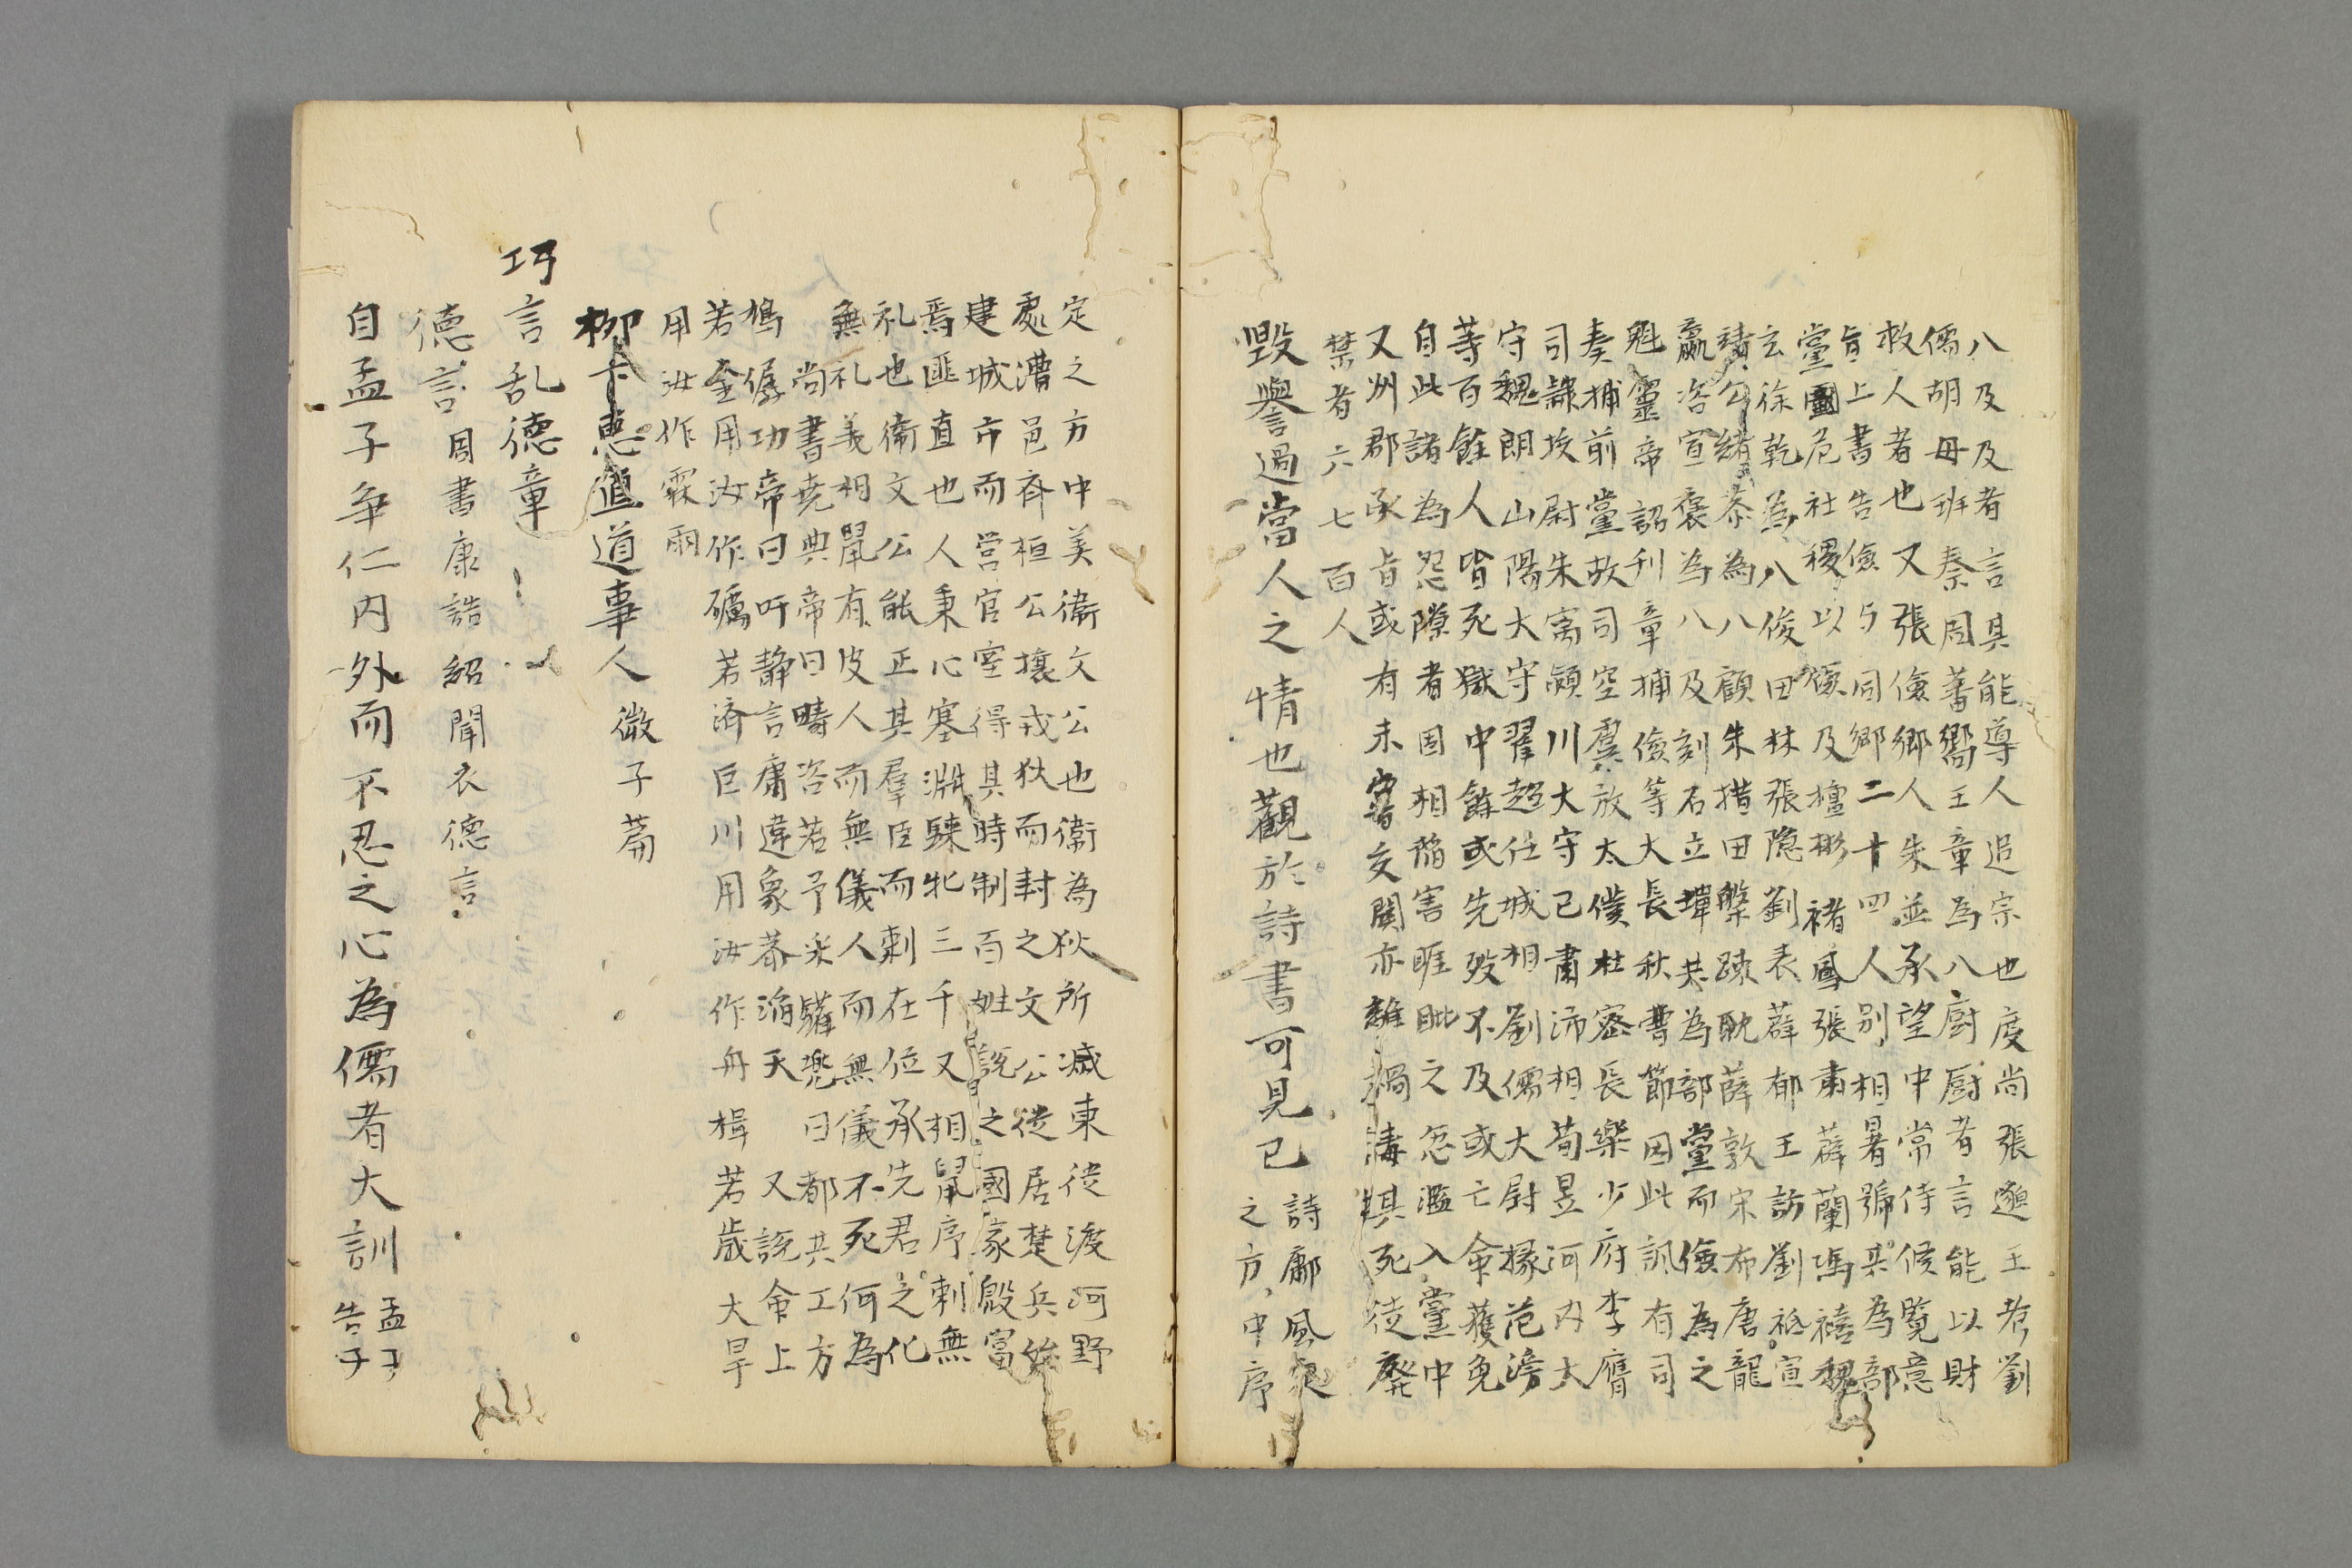 八及及者言其能導人追宗也度尚張邈王考劉
儒胡母班秦周蕃嚮王章為八廚廚者言能以財
救人者也又張儉鄉人朱並承望中常侍候覧意
旨上書告儉与同郷二十四人別相署號共為部
黨圖危社稷以儉及檀彬褚鳳張肅薜蘭馮禧魏
玄徐乾為八俊田林張隠劉表薜郁王訪劉祗宣
靖公緒恭為八顧朱楷田槃疎耽薛敦宋布唐龍
嬴咨宣褒為八及刻石立墠共為部黨而儉為之
魁靈帝詔刊章捕儉等大長秋曹節因此諷有司
奏捕前黨故司空虞放太僕杜密長樂少府李膺
司隸校尉朱寓潁川大守巴肅沛相荀昱河内大
守魏朗山陽大守翟超任城相劉儒大尉掾范滂
等百餘人皆死獄中餘或先殁不及或亡命獲免
自此諸為忍隙者因相陥害睚眦之忿濫入黨中
又州郡承旨或有未甞交関亦離禍毒其死徒廢
禁者六七百人
毀譽過當人之情也觀於詩書可見已 詩鄘風定之方中序
定之方中美衞文公也衞為狄所滅東徒渡河野
處漕邑斉桓公攘戎狄而封之文公徙居楚丘始
建城市而営官室得其時制百姓說之國家殷富
焉匪直也人秉心塞淵騋牝三千又相鼠序刺無
礼也衞文公能正其羣臣而刺在位承先君之化
無礼義相鼠有皮人而無儀人而無儀不死何為
尚書堯典帝曰疇咨若予采驩兜曰都共工方
鳩僝功帝曰吁静言庸違象恭滔天 又說命上
若金用汝作礪若済巨川用汝作舟楫若歳大旱
用汝作霖雨
柳下恵直道事人 微子萹
巧言乱徳章
徳言 周書康誥紹聞衣徳言
自孟子争仁内外而不忍之心為儒者大訓 孟子告子